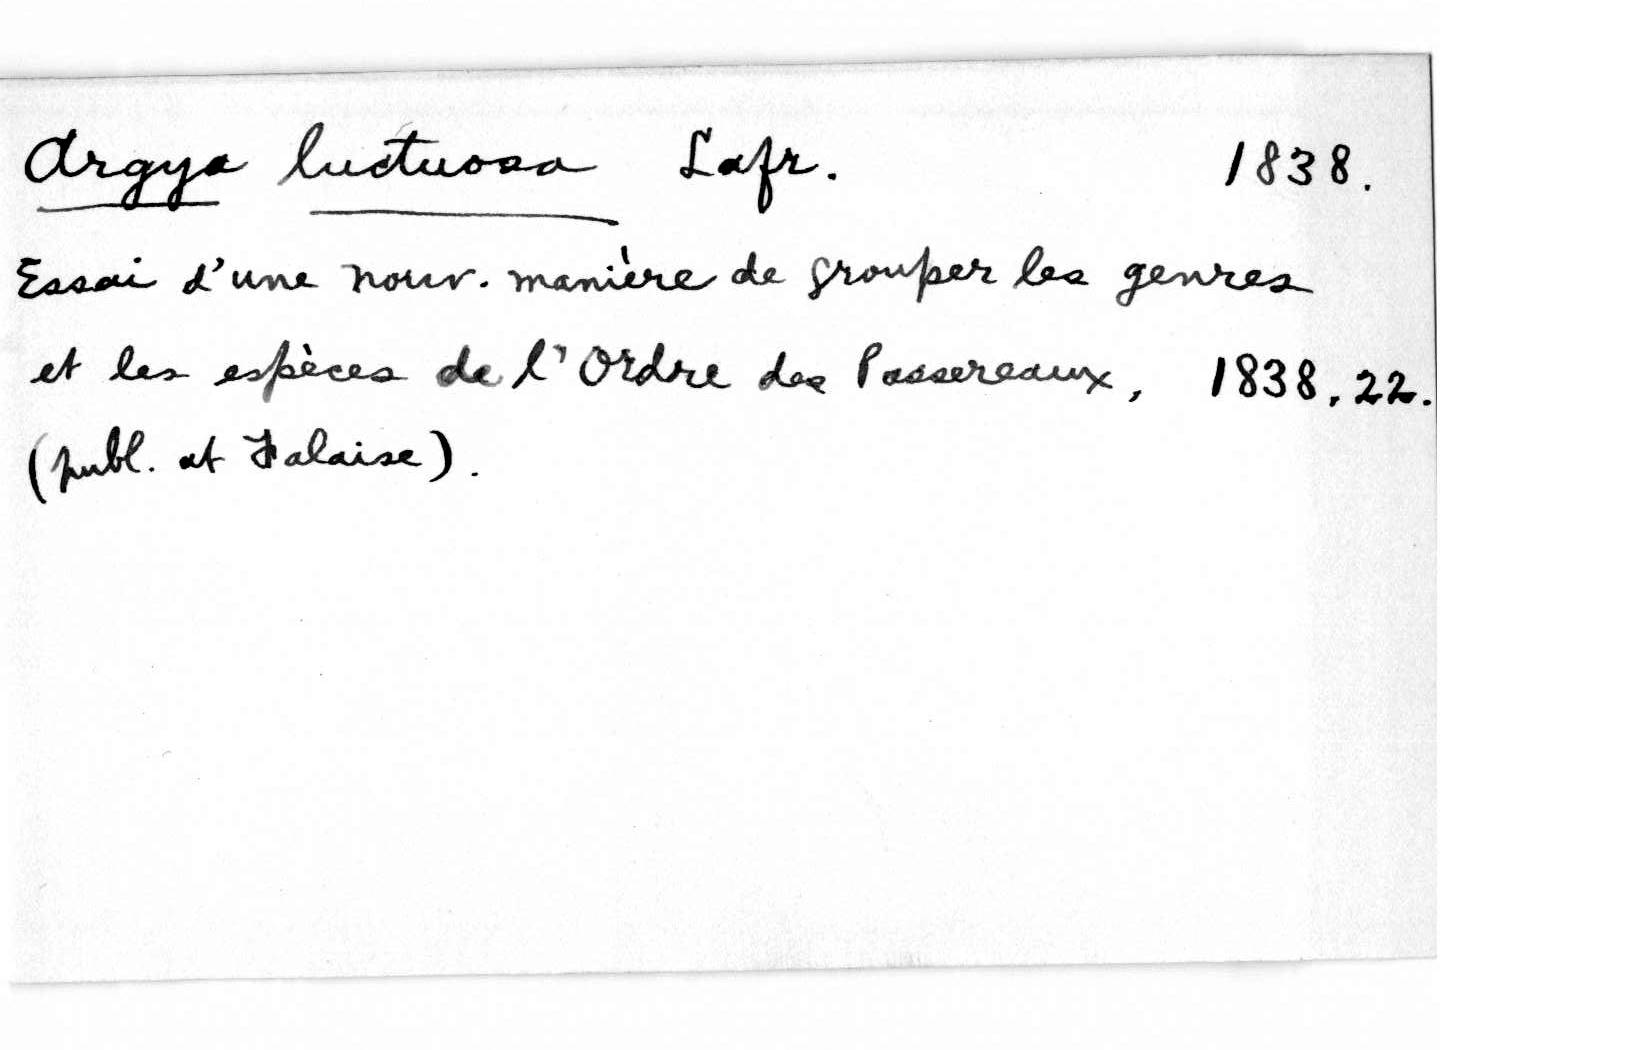 Argya luctuosa Lafr. 1838.
Essai d'une nouv. manière de grouper les genres
et les espèces de l'Ordre des Passereaux, 1838, 22.
(publ. at Falaise).